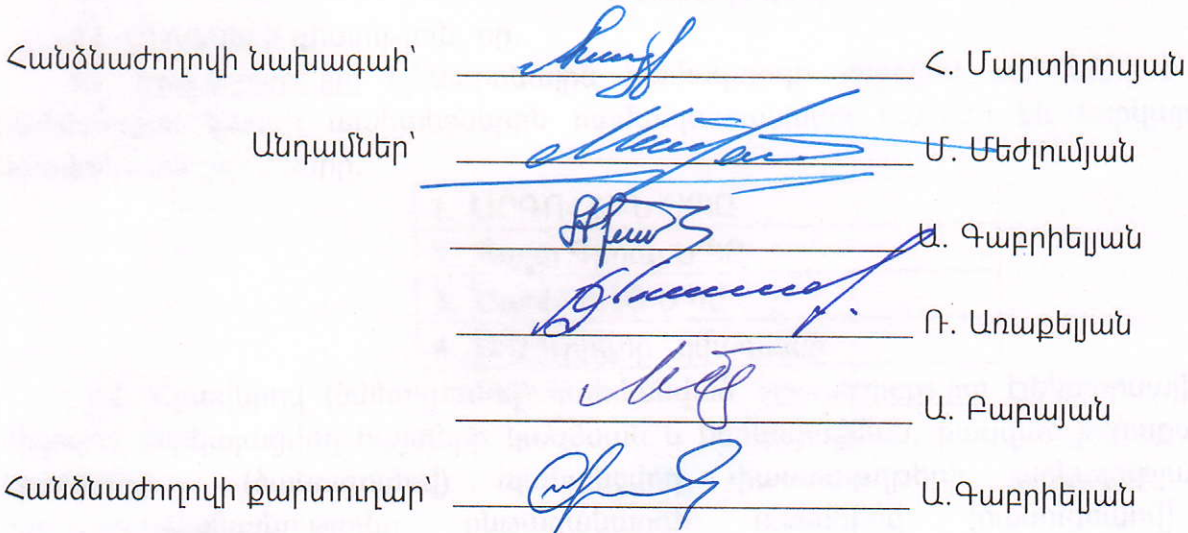 Հանձնաժողովի նախագահ՝ Հ. Մարտիրոսյան
Անդամներ՝ Մ. Մեժլումյան
Ա. Գաբրիելյան
Ռ. Առաքելյան
Ա. Բաբայան
Հանձնաժողովի քարտուղար՝ Ա.Գաբրիելյան